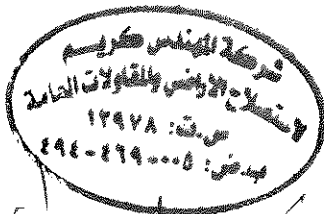 شركة المهندس كريم
لاستصلاح الاراضى والمقاولات العامة
س.ت: ١٢٩٧٨
ب.ض: ٠٠٠٥-٤٦٩-٤٩٤